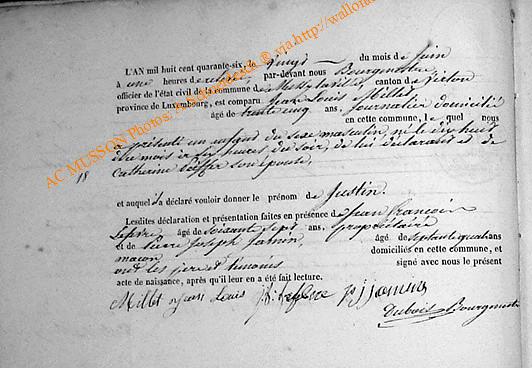 L'AN mil huit cent quarante-six, le vingt du mois de juin
à une heures de relevée, par-devant nous Bourgmestre,
officier de l'état civil de la commune de Mussy la ville, canton de Virton
province de Luxembourg, est comparu Jean Louis Millet
âgé de trente cinq ans, journalier domicilié
en cette commune, le quel nous
a présenté un enfant du sexe masculin, né le dix huit
du mois à six heures du soir, de lui déclarant et de
Catherine son épouse,
18
et auquel il a déclaré vouloir donner le prénom de Justin.
Lesdites déclaration et présentation faites en présence de Jean François
Lefevre, âgé de soixante sept ans, propriétaire
et de Pierre Joseph Jamin, âgé de septante quatre ans
maçon domiciliés en cette commune, et
ont les père et témoins signé avec nous le présent
acte de naissance, après qu'il leur en a été fait lecture.
Millet Jean Louis J f lefevre p j jamin
Dubois Bourgmestre
AC MUSSON Photos, via http://wallon